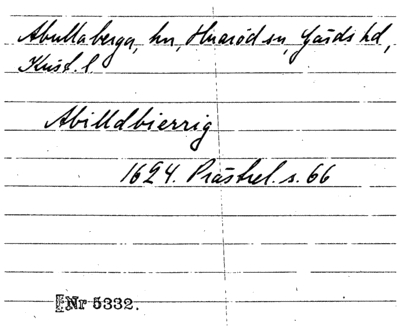 Abullaberga, hn, Huaröd sn, Gärds hd,
Krist. l
Abilldbierrig
1624. Prästrel. s. 66
Nr 5332.